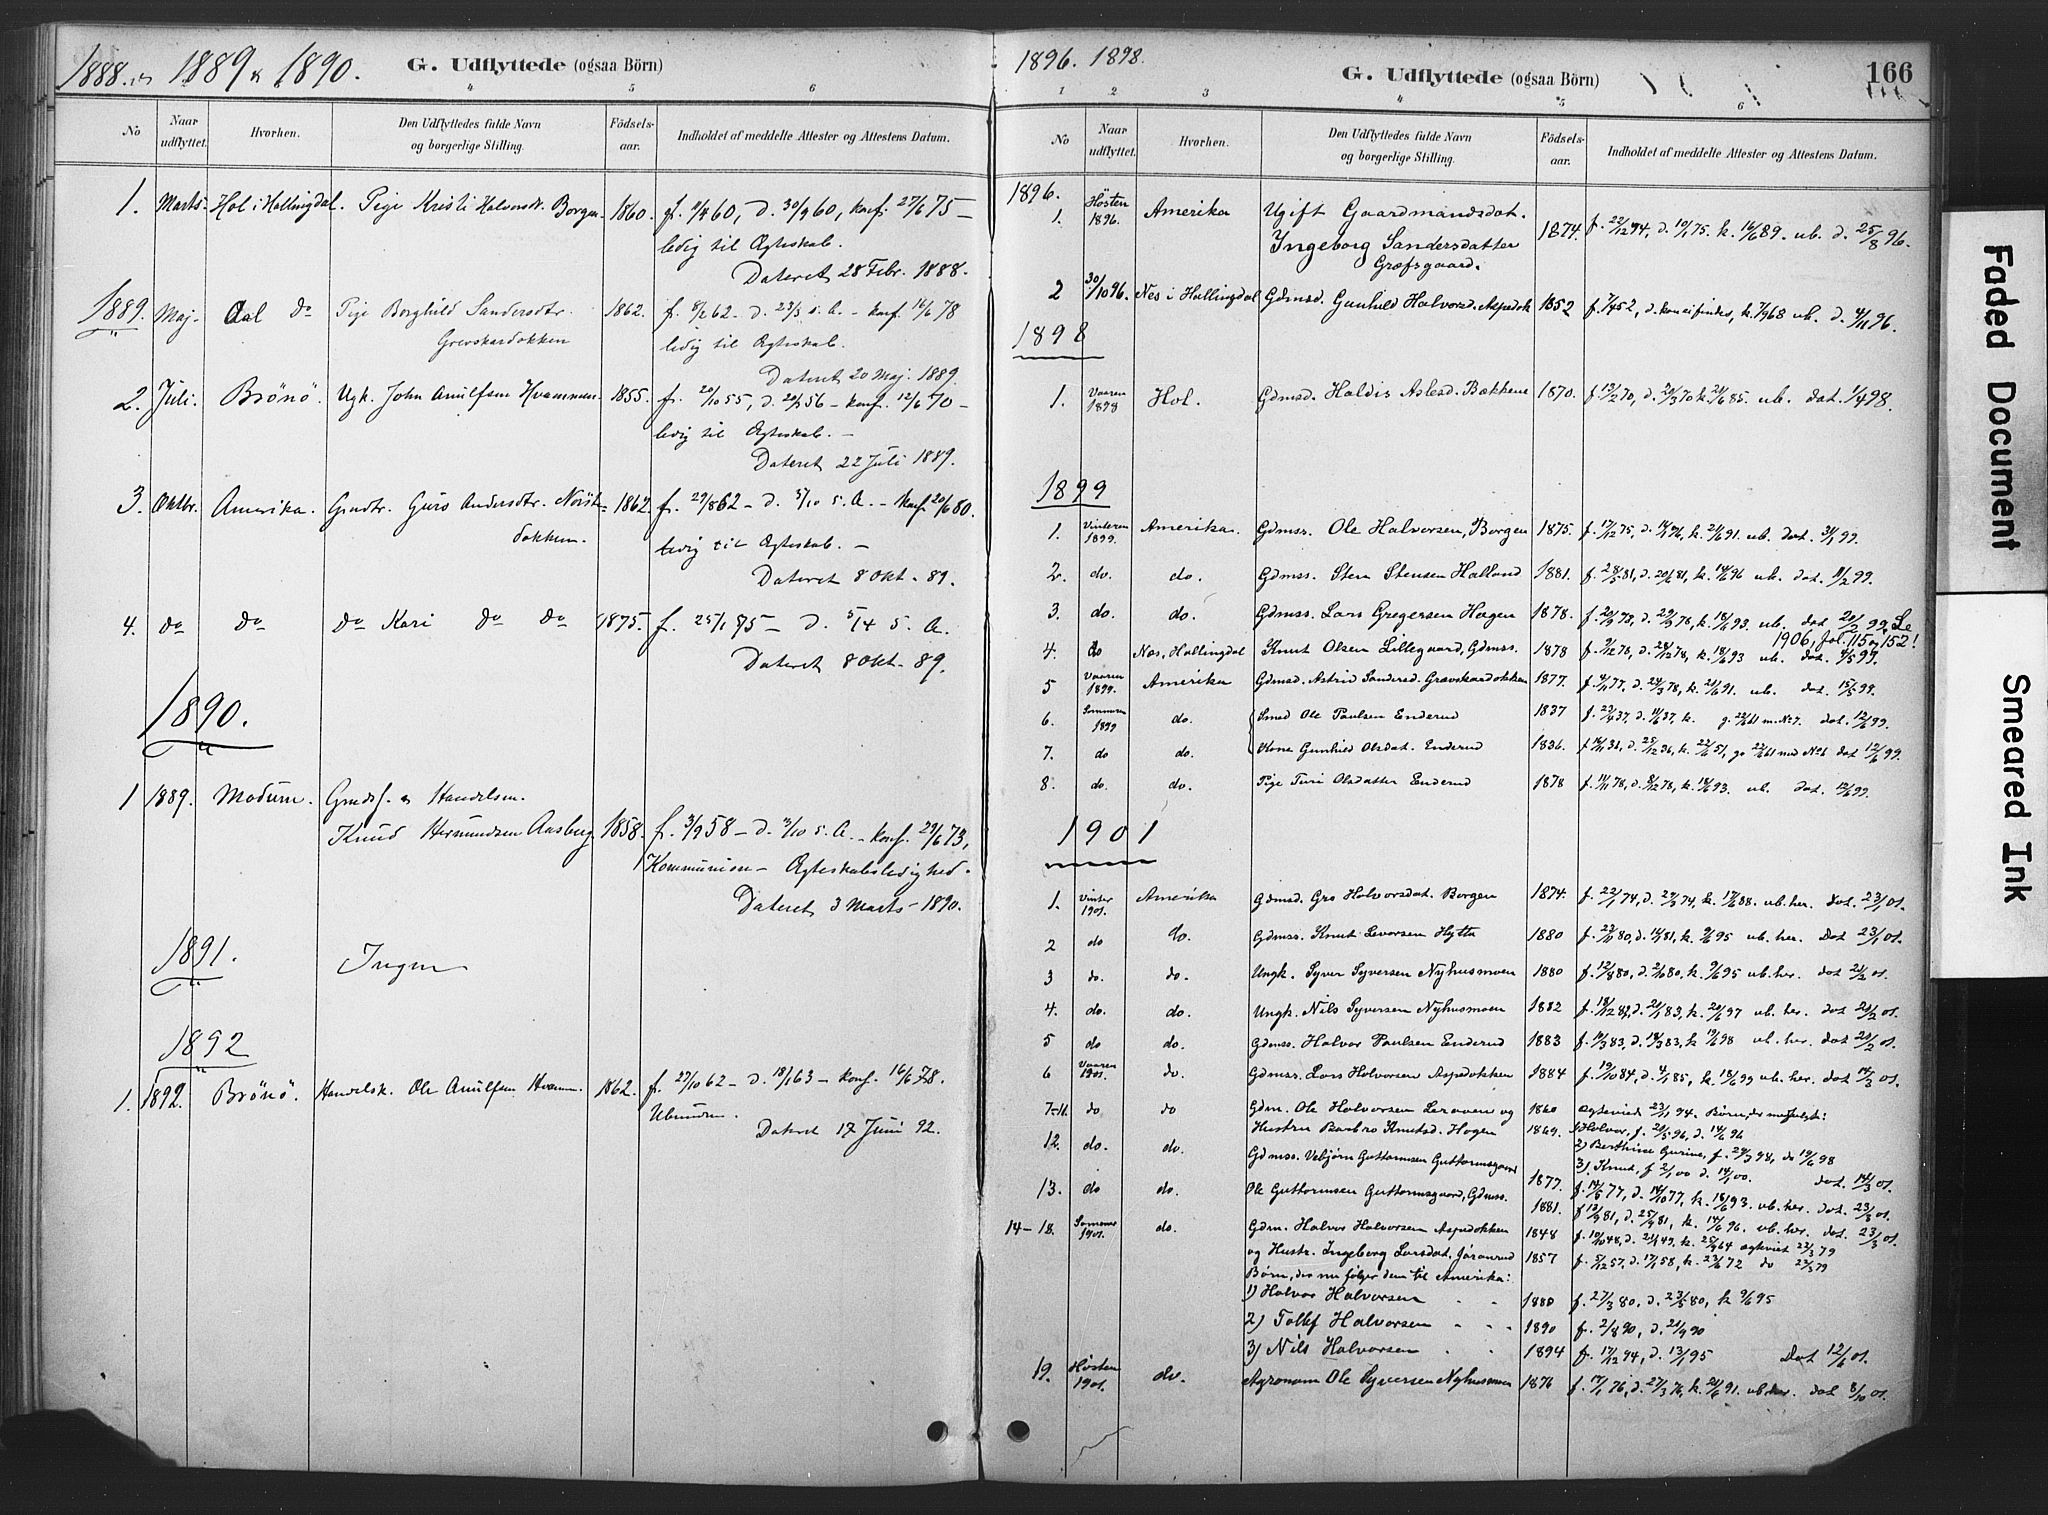 1888 & 1889 & 1890. G. Udflyttede (ogsaa Börn)
4 5 6
No Naar udflyttet. Hvorhen. Den Udflyttedes fulde Navn og borgerlige Stilling. Födsels-aar. Indholdet af meddelte Attester og Attestens Datum.
1. Marts. Hol i Hallingdal. Pige Kristi Halvorsdt. Borgen 1860. f. 11/4 60, d. 30/9 60, konf. 27/6 75 –
ledig til Ægteskab.
Dateret 28 Febr. 1888.
1889. Maj. Aal do Pige Borghild Sandersdtr. 1862. f. 8/2 62 – d. 23/3 s. A. – konf. 16/6 78
Grevskardokken ledig til Ægteskab.
Dateret 20 Maj. 1889.
2. Juli. Brönö. Ugk. John Arnulfsen Hvammen 1855. f. 20/10 55, d. 20/1 56 – konf. 12/6 70 –
ledig til Ægteskab. –
Dateret 22 Juli 1889.
3. Oktbr. Amerika. Gmdtr. Guro Andersdtr. Norste- 1862. f. 29/8 62 – d. 5/10 s. A. – konf. 20/6 80.
dokken. ledig til Ægteskab. –
Dateret 8 Okt. 89.
4. do do do Kari do do 1875. f. 25/1 75 – d. 5/4 s. A.
Dateret 8 Okt. 89.
1890.
1 1889. Modum. Gmds. & Handelsm.
Knud Hermundsen Aasberg. 1858. f. 3/9 58 – d. 3/10 s. A. – konf. 29/6 73,
Kommunion – Ægteskabsledighed.
Dateret 3 Marts – 1890.
1891. Ingen
1892
1. 1892. Brönö. Handelsk. Ole Arnulfsen Hvamm. 1862. f. 27/10 62 – d. 18/1 63 – konf. 16/6 78.
Ubunden.
Dateret 17 Juni 92.
1896. 1898. G. Udflyttede (ogsaa Börn) 166
1 2 3 4 5 6
No Naar udflyttet. Hvorhen. Den Udflyttedes fulde Navn og borgerlige Stilling. Födsels-aar. Indholdet af meddelte Attester og Attestens Datum.
1896.
1. Hösten 1896. Amerika Ugift Gaardmandsdat.
Ingeborg Sandersdatter 1874. f. 22/12 74, d. 10/1 75. k. 16/6 89. ub. d. 25/8 96.
Græfsgaard.
2 30/10 96. Nes i Hallingdal Gdmsd. Gunhild Halvorsd. Aspedok 1852 f. 7/4 52, d. kan ei findes, k. 7/9 68 ub. d. 4/11 96.
1898
1. Vaaren 1898 Hol. Gdmsd. Haldis Aslesd. Bækkene 1870. f. 13/2 70, d. 20/3 70 k. 21/6 85. ub. dat. 1/4 98.
1899
1. Vinteren 1899. Amerika. Gdmss. Ole Halvorsen, Borgen 1875. f. 17/12 75, d. 14/1 76, k. 21/6 91. ub. dat. 31/1 99.
2. do. do. Gdmss. Sten Stensen Halland 1881. f. 28/5 81, d. 20/6 81, k. 14/6 96 ub. dat. 11/2 99.
3. do. do. Gdmss. Lars Gregersen Hagen 1878. f. 20/8 78, d. 29/9 78, k. 18/6 93. ub. dat 20/2 99. Se
1906, fol. 115 & 152!
4. do Nes, Hallingdal Knut Olsen Lillegaard, Gdmss. 1878 f. 9/12 78, d. 28/12 78, k. 18/6 93 ub. dat. 4/5 99.
5 Vaaren 1899. Amerika Gdmsd. Astrid Sandersd. Grævskardokken 1877. f. 4/11 77, d. 24/3 78, k. 21/6 91. ub. dat 15/5 99.
6. Sommeren 1899 do. Smed Ole Paulsen Enderud 1837 f. 22/4 37, d. 11/6 37, k. g. 22/6 61 m. No 7. dat. 12/6 99.
7. do do. Kone Gunhild Olsdat. Enderud 1836. f. 16/11 36, d. 25/12 36, k. 22/6 51, g. 22/6 61 med No 6 dat 12/6 99.
8. do. do. Pige Turi Olsdatter Enderud 1878 f. 11/11 78, d. 8/12 78, k. 18/6 93. ub. dat. 12/6 99.
1901
1. Vinter 1901. Amerika Gdmsd. Gro Halvorsdat. Borgen 1874. f. 22/1 74, d. 29/3 74, k. 17/6 88. ub. her. dat. 23/1 01.
2 do do. Gdmss. Knut Levorsen Hytta 1880 f. 23/11 80, d. 14/1 81, k. 9/6 95 ub. her. Dat 23/1 01.
3 do. do. Ungk. Syver Syversen Nyhusmoen 1880 f. 12/8 80, d. 2/10 80, k. 9/6 95 ub. her. dat 20/2 01.
4. do. do. Ungk. Nils Syversen Nyhusmoen 1882 f. 18/12 82, d. 21/1 83, k. 20/6 97 ub. her. dat 20/2 01.
5 do do. Gdmss. Halvor Paulsen Enderud 1883 f. 10/3 83, d. 18/3 83, k. 19/6 98 ub. her. dat 20/2 01.
6 Vaaren 1901. do. Gdmss. Lars Halvorsen Aspedokken 1884 f. 19/10 84, d. 4/1 85, k. 18/6 99 ub. her. dat 14/3 01.
7-11. do do Gdm. Ole Halvorsen Leraven og 1860 Ægteviet 23/11 94. Børn, der medfulgte:
Hustru Barbro Knutsd. Hagen 1869. 1) Halvor, f. 20/5 96, d. 14/6 96
2) Berthine Gurine, f. 29/3 98, do 19/6 98
3) Knut, f 2/1 00 d. 14/1 00. dat. 14/3 01.
12. do. do. Gdmss. Vebjørn Guttormsen Guttormsgaard 1877. f. 14/6 77, d. 14/10 77, k. 18/6 93. ub. her. dat. 23/3 01.
13. do do. Ole Guttormsen Guttormsgaard, Gdmss. 1881. f 12/9 81, d. 25/9 81, k. 14/6 96. ub. her. dat. 23/3 01.
14-18. Sommer 1901. do. Gdm. Halvor Halvorsen Aspedokken 1848 f. 19/10 48, d. 21/1 49, k. 25/9 64 ægteviet 23/3 79
og Hustr. Ingeborg Larsdat. Jøranrud 1857 f. 5/12 57, d. 17/1 58, k. 23/6 72 do 23/3 79
Børn, der nu følger dem til Amerika:
1) Halvor Halvorsen 1880 f. 27/3 80, d. 23/5 80, k 9/6 95
2) Tollef Halvorsen 1890 f. 2/8 90, d. 21/9 90
3) Nils Halvorsen 1894 f. 17/12 94, d. 13/1 95 Dat 12/6 01.
19. Høsten 1901. do. Agronom Ole Syversen Nyhusmoen 1876 f. 17/1 76, d. 27/3 76, k. 21/6 91. ub. her. dat 8/10 01.
Faded Document
Smeared Ink